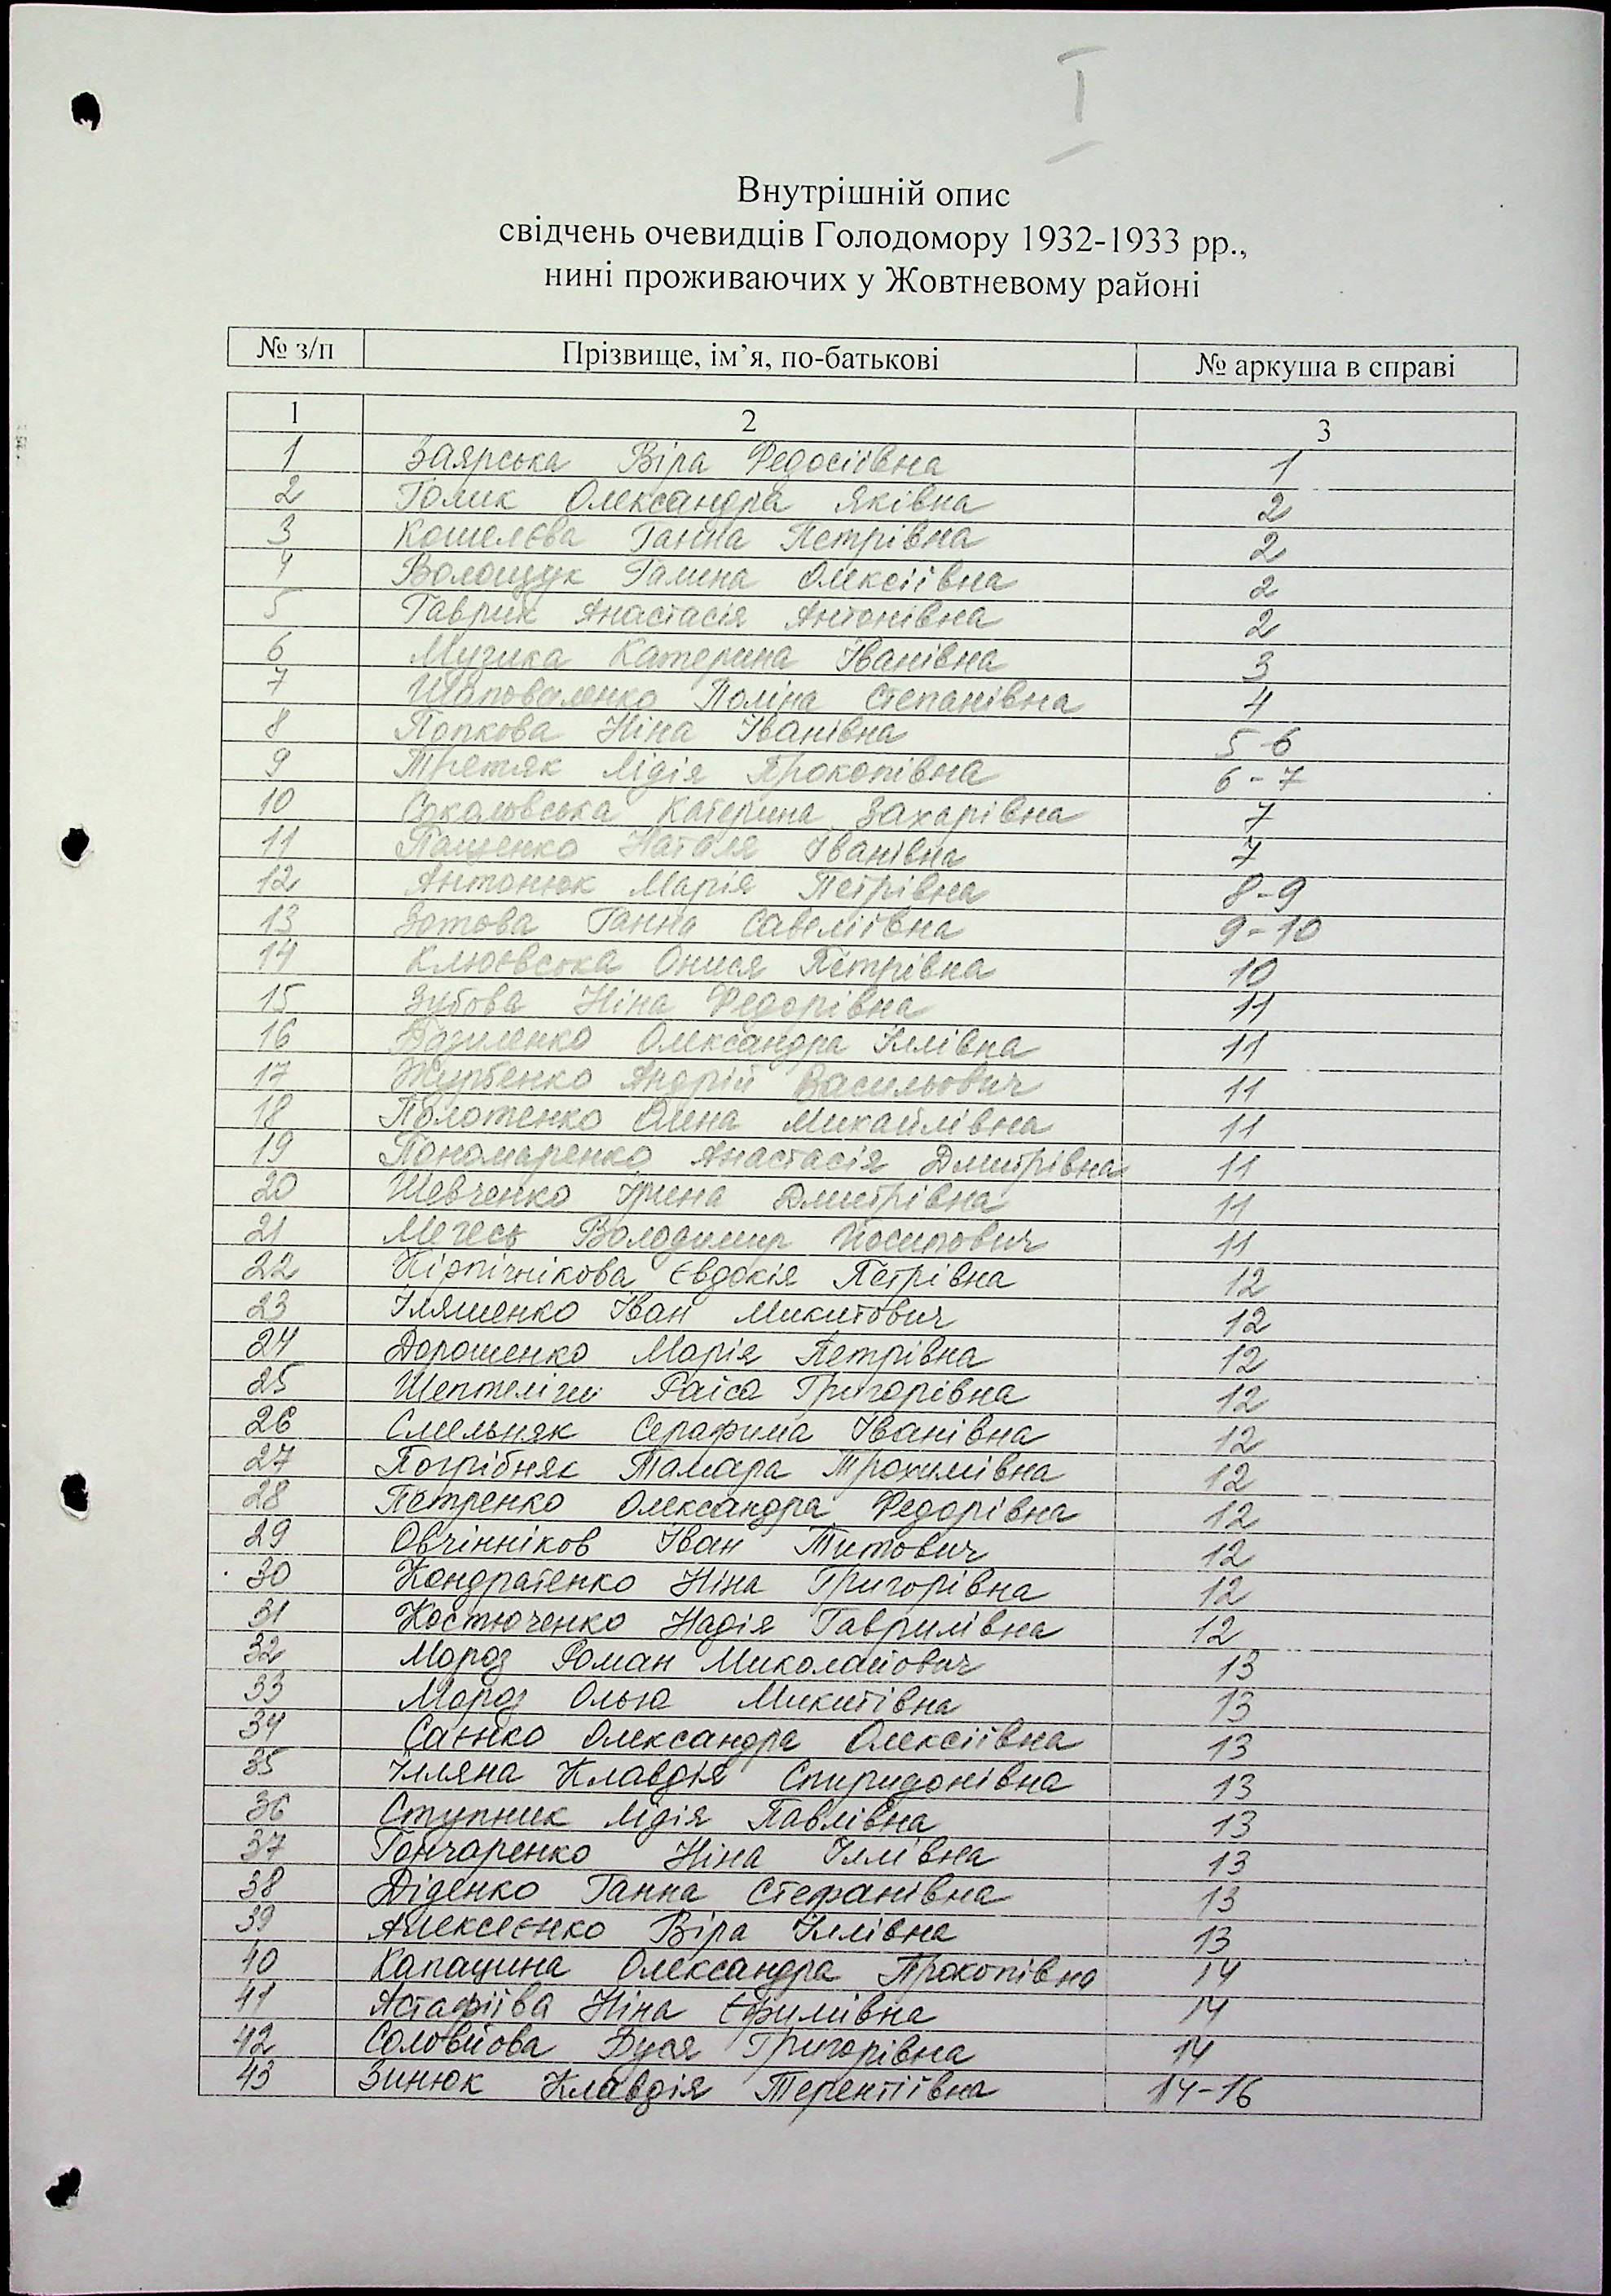 I
Внутрішній опис
свідчень очевидців Голодомору 1932-1933 рр.,
нині проживаючих у Жовтневому районі
№ з/п Прізвище, ім’я, по-батькові № аркуша в справі
1 2 3
1 Заярська Віра Федосіївна 1
2 Голик Олександра Яківна 2
3 Кошелєва Ганна Петрівна 2
4 Волощук Галина Олексіївна 2
5 Гаврик Анастасія Антонівна 2
6 Музика Катерина Іванівна 3
7 Шаповаленко Поліна Степанівна 4
8 Попкова Ніна Іванівна 5-6
9 Третяк Лідія Прокопівна 6-7
10 Соколовська Катерина Захарівна 7
11 Пащенко Наталя Іванівна 7
12 Антонюк Марія Петрівна 8-9
13 Зотова Ганна Савеліївна 9-10
14 Клюєвська Онися Петрівна 10
15 Зубова Ніна Федорівна 11
16 Олександра Іллівна 11
17 Журбенко Андрій Васильович 11
18 Полотенко Олена Михайлівна 11
19 Пономаренко Анастасія Дмитрівна 11
20 Шевченко Ірина Дмитрівна 11
21 Мегесь Володимир Йосипович 11
22 Кірпічнікова Євдокія Петрівна 12
23 Іляшенко Іван Микитович 12
24 Дорошенко Марія Петрівна 12
25 Раїса Григорівна 12
26 Смельняк Серафима Іванівна 12
27 Погрібняк Тамара Трохимівна 12
28 Петренко Олександра Федорівна 12
29 Овчінніков Іван Титович 12
30 Кондратенко Ніна Григорівна 12
31 Костюченко Надія Гаврилівна 12
32 Мороз Роман Миколайович 13
33 Мороз Ольга Микитівна 13
34 Санжо Олександра Олексіївна 13
35 Іляна Клавдія Спиридонівна 13
36 Ступник Лідія Павлівна 13
37 Гончаренко Ніна Іллівна 13
38 Діденко Ганна Стефанівна 13
39 Алексєєнко Віра Іллівна 13
40 Капацина Олександра Прокопівна 14
41 Астафіїва Ніна Єфимівна 14
42 Соловйова Дуся Григорівна 14
43 Зинюк Клавдія Терентіївна 14-16